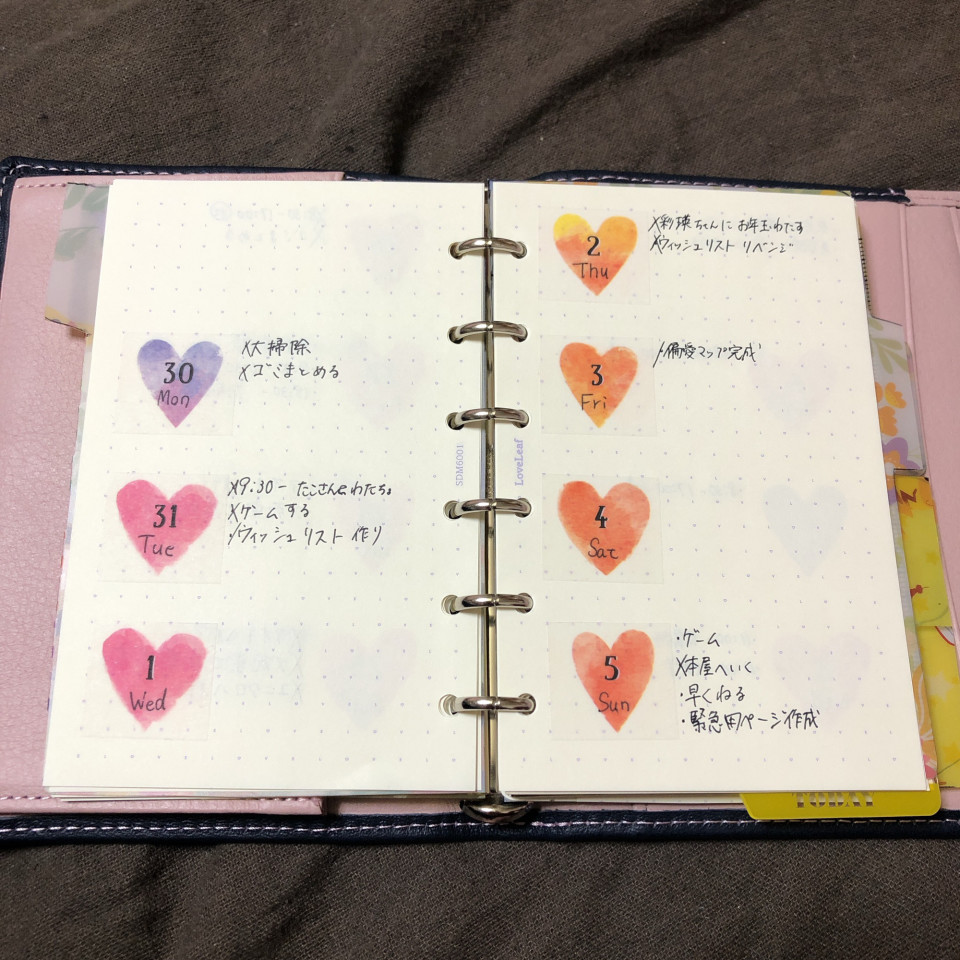 30
Mon
x大掃除
xゴミまとめる
31
Tue
x9:30-
xゲームする
/ウィッシュリスト作り
1
Wed
SDM6001
LoveLeaf
2
Thu
x彩瑛ちゃんにお年玉わたす
xウィッシュリスト リベンジ
3
Fri
/偏愛マップ完成
4
Sat
5
Sun
・ゲーム
x本屋へいく
・早くねる
・緊急用ページ作成
TODAY